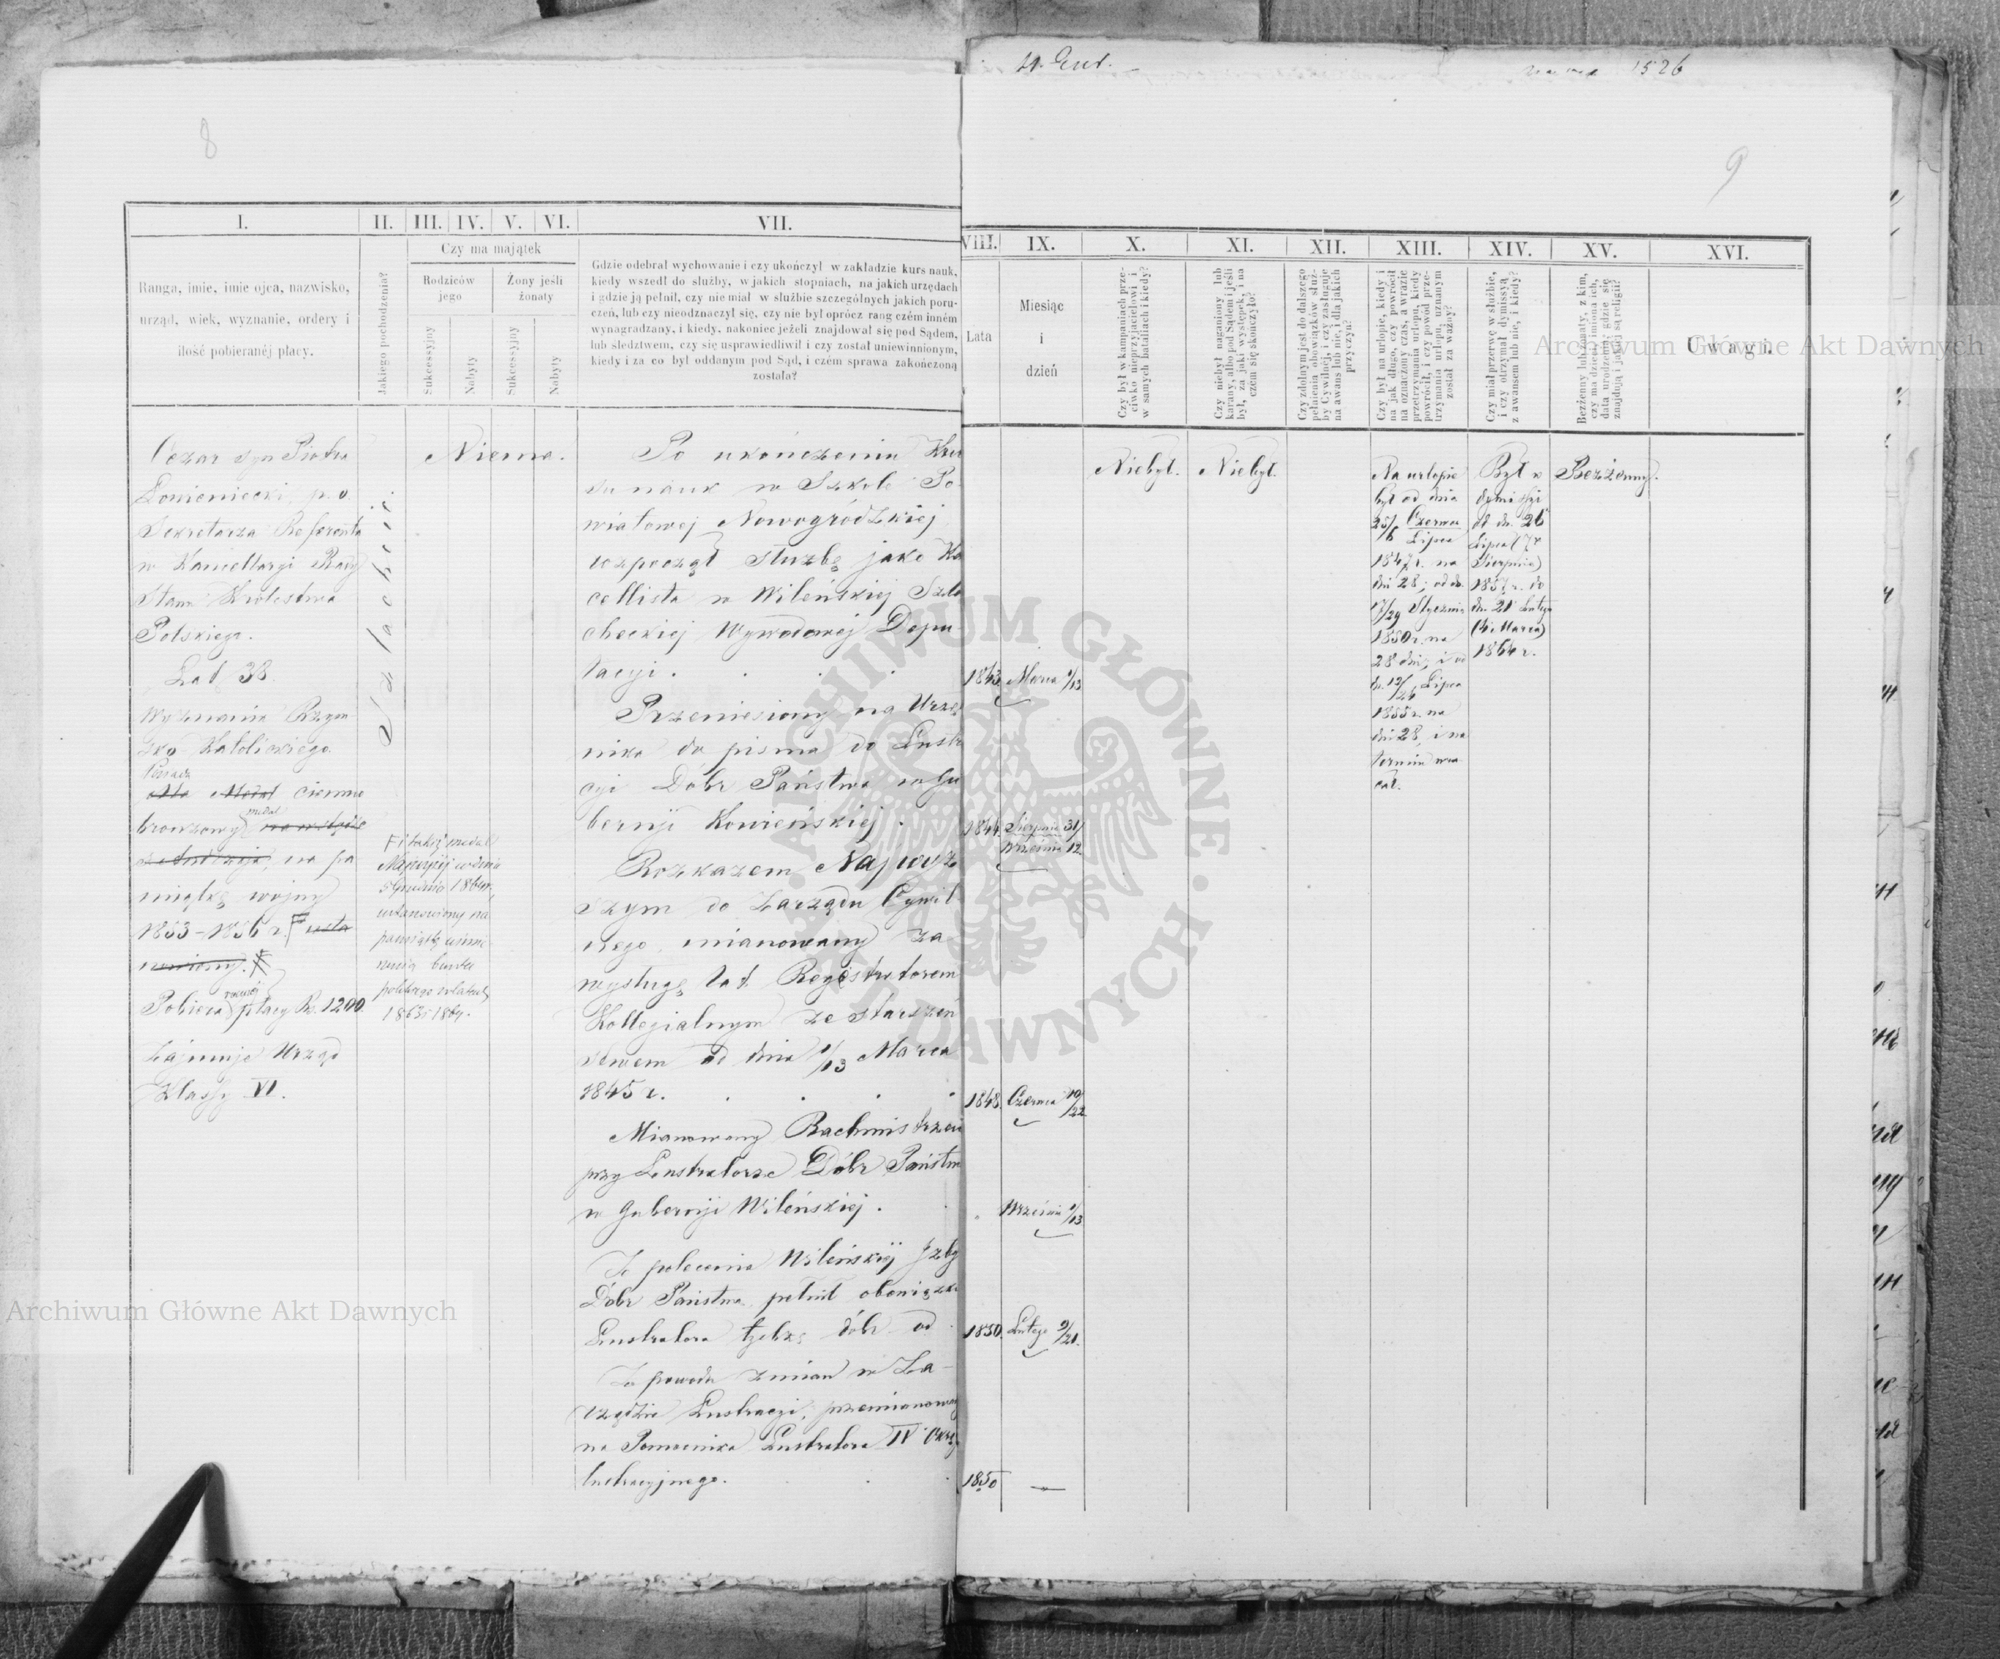 8
I. II. III. IV. V. VI. VII.
Ranga, imie, imie ojca, nazwisko,
urząd, wiek, wyznanie, ordery i
ilość pobieranéj płacy.
Jakiego pochodzenia?
Czy ma majątek
Rodziców
jego
Żony jeśli
żonaty
Sukcessyjny
Nabyty
Sukcessyjny
Nabyty
Gdzie odebrał wychowanie i czy ukończył w zakładzie kurs nauk,
kiedy wszedł do służby, w jakich stopniach, na jakich urzędach
i gdzie ją pełnił, czy nie miał w służbie szczególnych jakich poru-
czeń, lub czy nieodznaczył się, czy nie był oprócz rang czém inném
wynagradzany, i kiedy, nakoniec jeżeli znajdował się pod Sądem,
lub śledztwem, czy się usprawiedliwił i czy został uniewinnionym,
kiedy i za co był oddanym pod Sąd, i czém sprawa zakończoną
została?
Cezar syn Piotra
p. o.
Sekretarza Referenta
w Kancellaryi Rady
Stanu Królestwa
Polskiego.
Lat 38.
Wyznania Rzym-
sko-Katolickiego.
Posiada
medal ciemno
bronzowy medal
na pa
miątkę wojny
1853-1856 r. F
Pobiera rocznéj płacy Rs. 1200
Zajmuje Urząd
Klassy VI.
Szlachcic.
F i takiż medal
Najwyżej w dniu
Grudnia 1864 r.
ustanowiony na
pamiątkę uśmie-
rzenia buntu
polskiego w latach
1863-1864.
Niema.
Po ukończeniu Kur
su nauk w Szkole Po-
wiatowej Nowogródzkiej
rozpoczął służbę jako Ka
cellista w Wileńskiej Szla
checkiej Wywodowej Depu
tacyi.
Przeniesiony na Urzę
nika do pisma do Lustr
cyi Dóbr Państwa w Gu
bernji Kowieńskiej.
Rozkazem Najwyż
szym do Zarządu Cywil
nego mianowany za
wysługę lat Registratorem
Kollegialnym ze starszeń
stwem od dnia 1/13 Marca
1845 r.
Mianowany Rachmistrzem
przy Lustratorze Dóbr Państw
w Gubernji Wileńskiej.
Z polecenia Wileńskiej Izby
Dóbr Państwa pełnił obowiązk
Lustratora tychże dóbr od
Z powodu zmian w Za-
rządzie Lustracyi, przemianowany
na Pomocnika Lustratora IV Okrę
lustracyjnego.
N. Gub.
1526
9
VIII. IX. X. XI. XII. XIII. XIV. XV. XVI.
Lata
Miesiąc
i
dzień
Czy był w kampaniach prze-
ciwko nieprzyjacielowi i
w samych batailach i kiedy?
Czy niebył naganiony lub
karany, albo pod Sądem i jeśli
był, za jaki występek, i na
czem się skończyło?
Czy zdolnym jest do dalszego
pełnienia obowiązków służ-
by Cywilnéj, i czy zasługuje
na awans lub nie, i dla jakich
przyczyn?
Czy był na urlopie, kiedy i
na jak długo, czy powrócił
na oznaczony czas, a w razie
przetrzymania urlopu, kiedy
powrócił, i czy powód prze-
trzymania urlopu, uznanym
został za ważny?
Czy miał przerwę w służbie,
i czy otrzymał dymissyą
z awansem lub nie, i kiedy?
Bezżenny lub żonaty, z kim,
czy ma dzieci, imiona ich,
data urodzenia, gdzie się
znajdują i jakiéj są religii?
Uwagi.
1843. Marca 1/13
1844. Sierpnia 31/
Września 12
1848. Czerwca 10/22
Września 1/13
1850. Lutego 9/21.
1850 —
Niebył.
Niebył.
Na urlopie
był od dnia
25/6 Czerwca
Lipca
1847 r. na
dni 28; od dn.
17/29 Stycznia
1850 r. na
28 dni, i od
dn. 12/24 Lipca
1855 r. na
dni 28, i na
termin wra
cał.
Był w
dymissyi
od dn. 26
Lipca (7
Sierpnia)
1857 r. do
dn. 21 Lutego
(4 Marca)
1864 r.
Bezżenny.
Archiwum Główne Akt Dawnych
Archiwum Główne Akt Dawnych
ARCHIWUM GŁÓWNE
AKT DAWNYCH